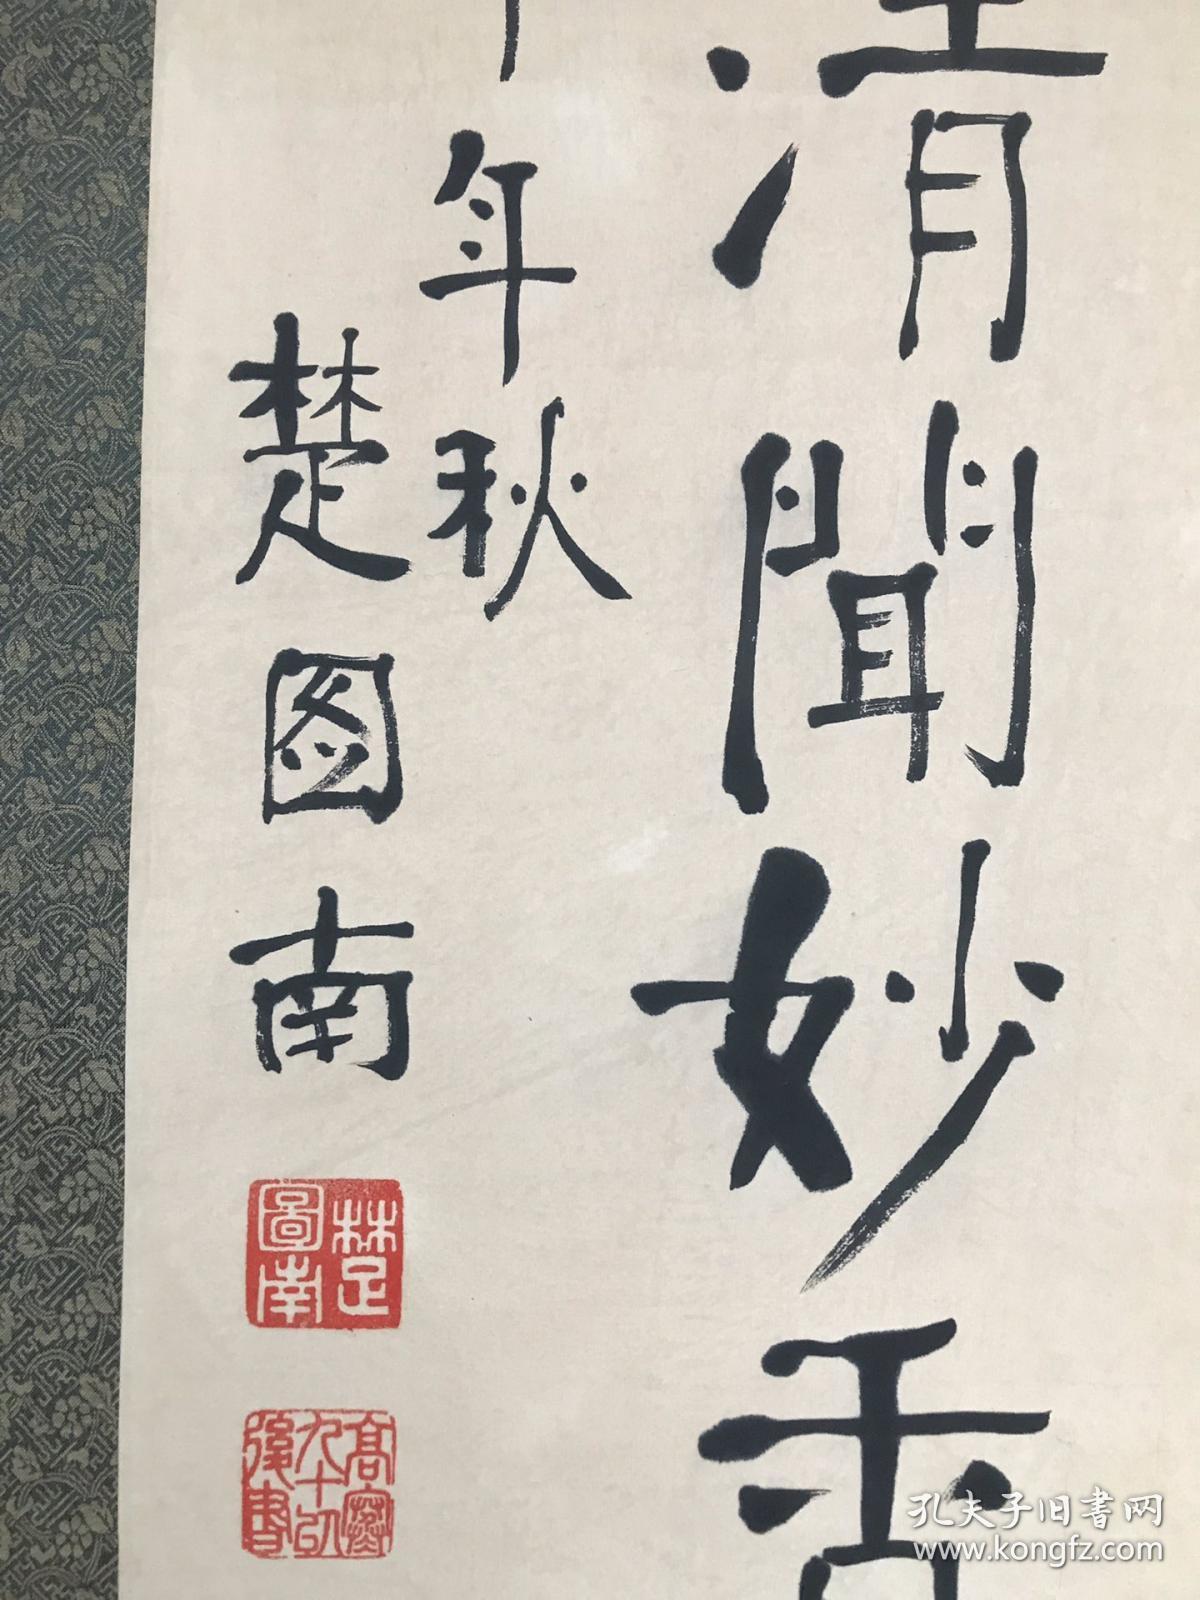 清聞妙香
年秋
楚图南
楚圖南
高寒九十以後書
孔夫子旧书网
www.kongfz.com